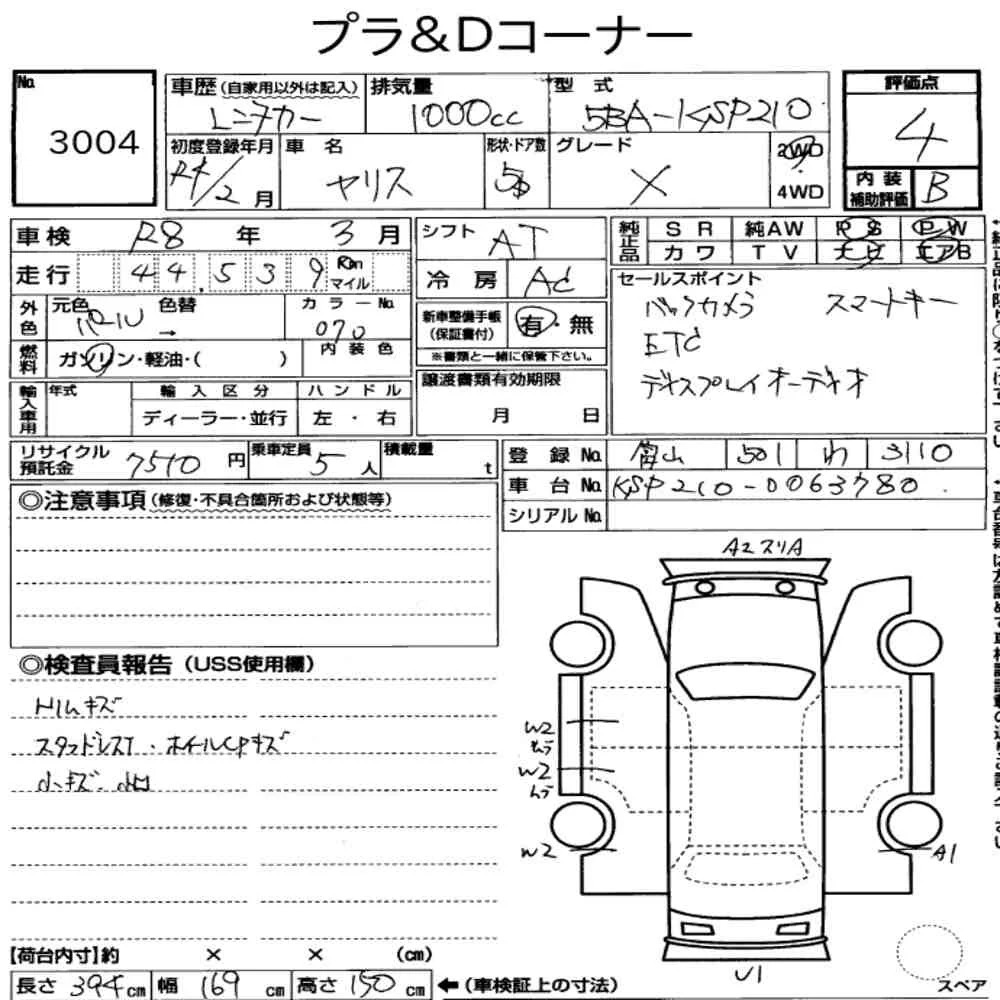 プラ&Dコーナー
No. 3004
車歴(自家用以外は記入) レンタカー
排気量 1000cc
型式 5BA-KSP210
評価点 4
初度登録年月 R4/2月
車名 ヤリス
形状・ドア数 5D
グレード X
2WD
4WD
内装補助評価 B
車検 R8年 3月
シフト AT
純正品 SR 純AW PS PW
カワ TV ナビ エアB
走行 44,539 Km マイル
冷房 AC
セールスポイント
バックカメラ スマートキー
ETC
ディスプレイオーディオ
外色 元色 パール 色替 → カラーNo. 070
新車整備手帳(保証書付) 有・無
※書類と一緒に保管下さい。
燃料 ガソリン・軽油・( ) 内装色
譲渡書類有効期限
月 日
輸入車用 年式 輸入区分 ハンドル
ディーラー・並行 左・右
リサイクル預託金 7510円
乗車定員 5人
積載量 t
登録No. 富山 501 わ 3110
車台No. KSP210-0063780
シリアルNo.
◎注意事項(修復・不具合箇所および状態等)
A2 スリA
◎検査員報告(USS使用欄)
トリムキズ
スタッドレスT・ホイールCPキズ
小キズ・凹
W2
ムラ
W2
ムラ
W2
A1
U1
スペア
【荷台内寸】約 × × (cm)
長さ 394cm 幅 169cm 高さ 150cm ←(車検証上の寸法)